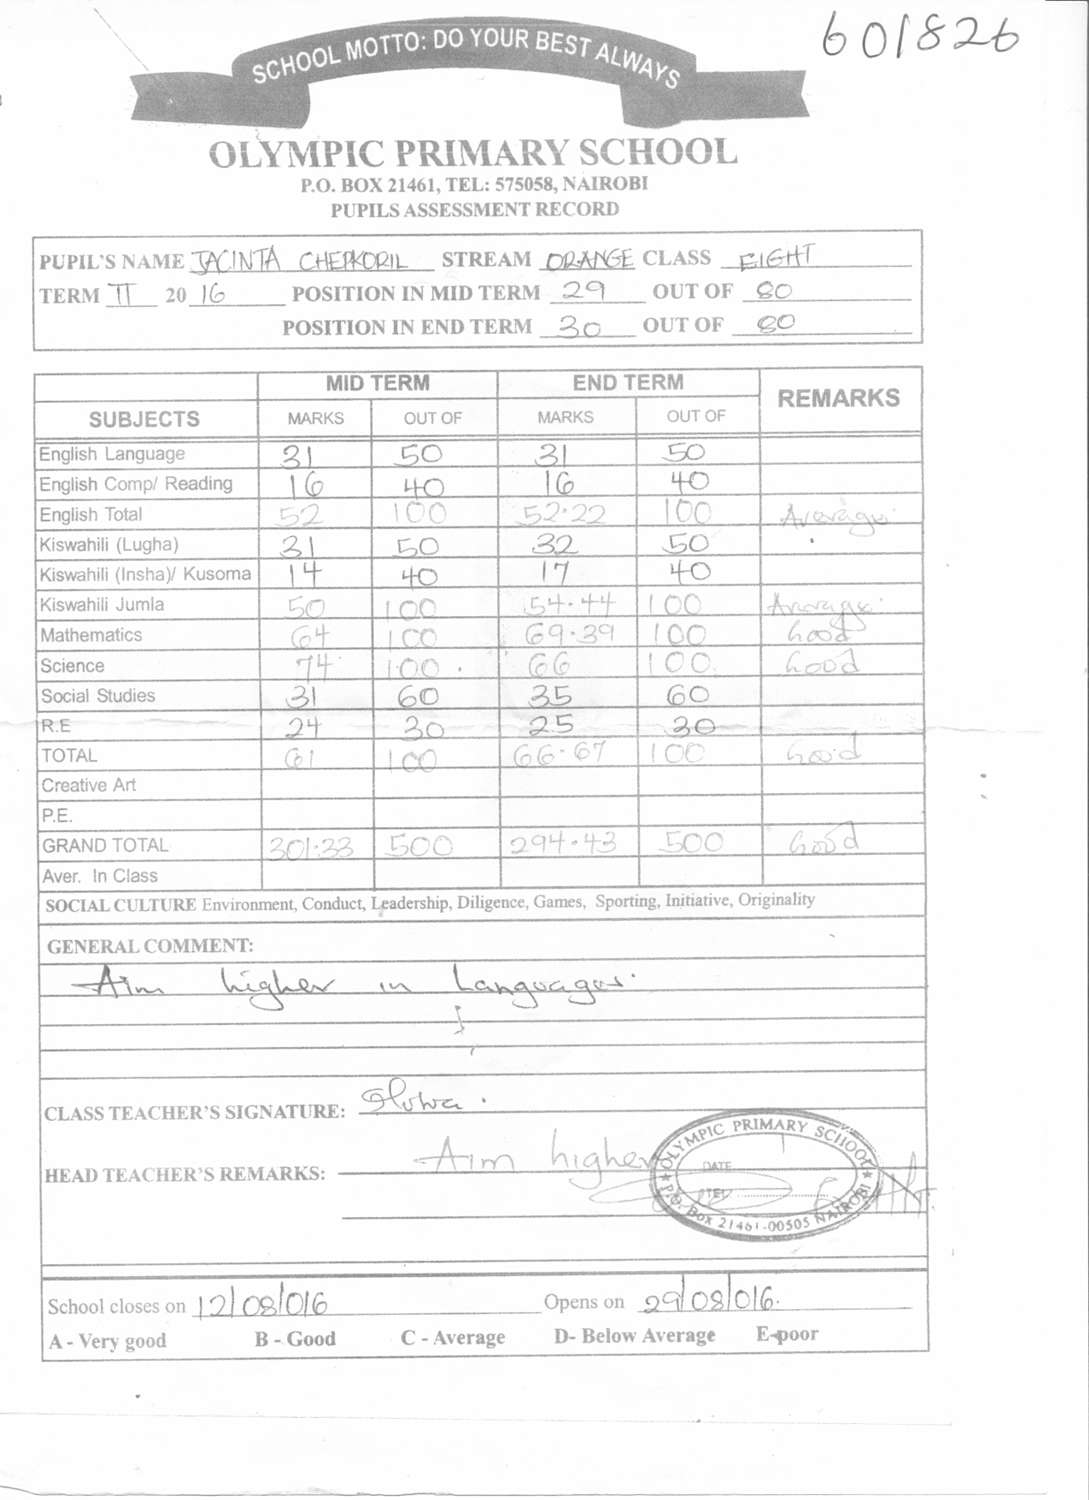 601826
SCHOOL MOTTO: DO YOUR BEST ALWAYS
OLYMPIC PRIMARY SCHOOL
P.O. BOX 21461, TEL: 575058, NAIROBI
PUPILS ASSESSMENT RECORD
PUPIL'S NAME JACINTA CHEPKORIL STREAM ORANGE CLASS EIGHT
TERM II 2016 POSITION IN MID TERM 29 OUT OF 80
POSITION IN END TERM 30 OUT OF 80
MID TERM END TERM REMARKS
SUBJECTS MARKS OUT OF MARKS OUT OF
English Language 31 50 31 50
English Comp/ Reading 16 40 16 40
English Total 52 100 52.22 100 Average
Kiswahili (Lugha) 31 50 32 50
Kiswahili (Insha)/ Kusoma 14 40 17 40
Kiswahili Jumla 50 100 54.44 100 Average
Mathematics 64 100 69.39 100 Good
Science 74 100 66 100 Good
Social Studies 31 60 35 60
R.E 24 30 25 30
TOTAL 61 100 66.67 100 Good
Creative Art
P.E.
GRAND TOTAL 301.33 500 294.43 500 Good
Aver. In Class
SOCIAL CULTURE Environment, Conduct, Leadership, Diligence, Games, Sporting, Initiative, Originality
GENERAL COMMENT:
Aim higher in Languages.
CLASS TEACHER'S SIGNATURE:
HEAD TEACHER'S REMARKS: Aim higher
OLYMPIC PRIMARY SCHOOL
DATE
TEL
P.O. Box 21461-00505 NAIROBI
School closes on 12/08/016 Opens on 29/08/016.
A - Very good B - Good C - Average D- Below Average E-poor